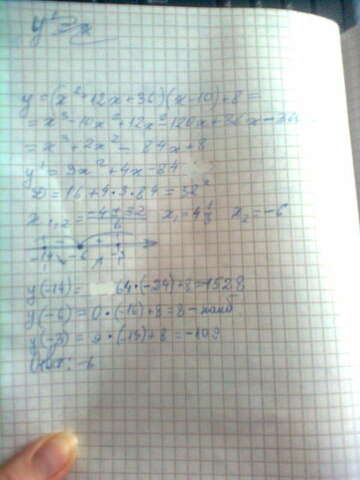 y = (x² + 12x + 36)(x - 10) + 8 =
= x³ - 10x² + 12x² - 120x + 36x - 
= x³ + 2x² - 84x + 8
y' = 3x² + 4x - 84
D = 16 + 4·3·84 = 32²
x₁,₂ = x₁ = 4 x₂ = -6
-14 -6 -3
y(-14) = 64·(-24) + 8 = -1528
y(-6) = 0·(-16) + 8 = 8 - наиб
y(-3) = 9·(-13) + 8 = -109
Ответ: -6